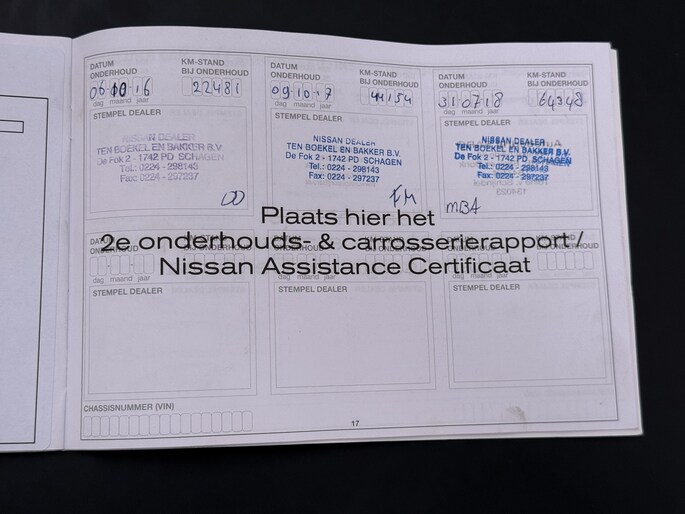 DATUM
ONDERHOUD
06 10 16
dag maand jaar
KM-STAND
BIJ ONDERHOUD
22481
STEMPEL DEALER
NISSAN DEALER
TEN BOEKEL EN BAKKER B.V.
De Fok 2 - 1742 PD SCHAGEN
Tel.: 0224 - 298143
Fax: 0224 - 297237
DATUM
ONDERHOUD
09 10 17
dag maand jaar
KM-STAND
BIJ ONDERHOUD
44154
STEMPEL DEALER
NISSAN DEALER
TEN BOEKEL EN BAKKER B.V.
De Fok 2 - 1742 PD SCHAGEN
Tel.: 0224 - 298143
Fax: 0224 - 297237
DATUM
ONDERHOUD
31 07 18
dag maand jaar
KM-STAND
BIJ ONDERHOUD
64348
STEMPEL DEALER
NISSAN DEALER
TEN BOEKEL EN BAKKER B.V.
De Fok 2 - 1742 PD SCHAGEN
Tel.: 0224 - 298143
Fax: 0224 - 297237
Plaats hier het
2e onderhouds- & carrosserierapport /
Nissan Assistance Certificaat
STEMPEL DEALER
STEMPEL DEALER
STEMPEL DEALER
CHASSISNUMMER (VIN)
17